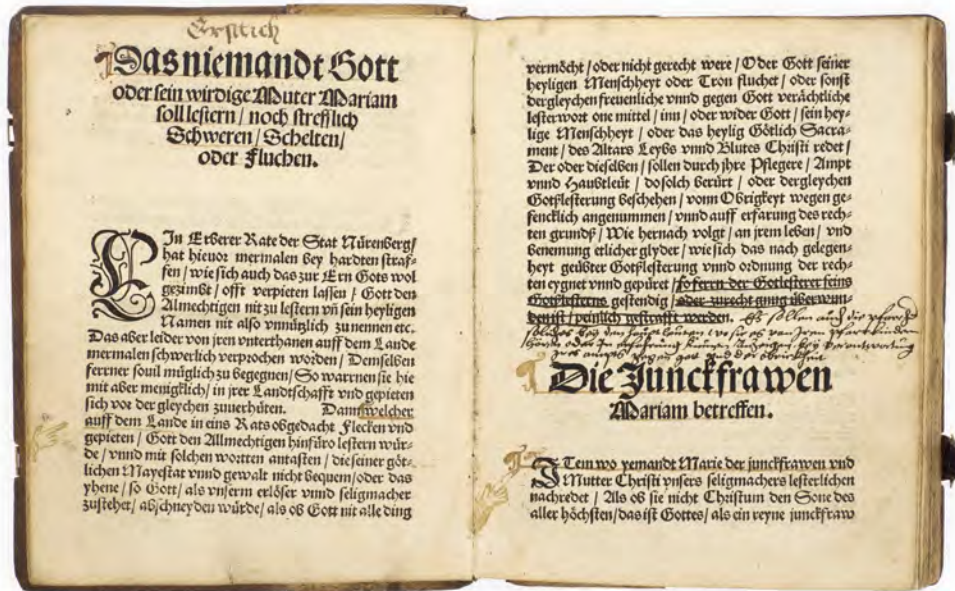 Erstlich
Das niemandt Gott
oder sein wirdige Muter Mariam
soll lestern / noch strefflich
Schweren / Schelten /
oder Fluchen.
EIn Erberer Rate der Stat Nürenberg /
hat hieuor mermalen bey hardten straf-
fen / wie sich auch das zur Ern Gots wol
gezimbt / offt verpieten lassen / Gott den
Almechtigen nit zu lestern vñ sein heyligen
Namen nit also vnnützlich zu nennen etc.
Das aber leider von jren vnterthanen auff dem Lande
mermalen schwerlich verprochen worden / Demselben
ferrner souil müglich zu begegnen / So warnnen sie hie
mit aber menigklich / in jrer Landtschafft vnd gepieten
sich vor der gleychen zuuerhüten. Dann welcher
auff dem Lande in eins Rats obgedacht Flecken vnd
gepieten / Gott den Allmechtigen hinfüro lestern wür-
de / vnnd mit solchen wortten antasten / die seiner göt-
lichen Mayestat vnnd gewalt nicht bequem / oder das
yhene / so Gott / als vnserm erlöser vnnd seligmacher
zustehet / abschneyden würde / als ob Gott nit alle ding
vermöcht / oder nicht gerecht were / Oder Gott seiner
heyligen Menschheyt oder Tron fluchet / oder sonst
dergleychen freuenliche vnnd gegen Gott verächtliche
lesterwort one mittel / inn / oder wider Gott / sein hey-
lige Menschheyt / oder das heylig Götlich Sacra-
ment / des Altars Leybs vnnd Blutes Christi redet /
Der oder dieselben / sollen durch jhre Pflegere / Ampt
vnnd Haubtleüt / do solch berürt / oder dergleychen
Gotßlesterung beschehen / vonn Obrigkeyt wegen ge-
fencklich angenummen / vnnd auff erfarung des rech-
ten grundß / Wie hernach volgt / an jrem leben / vnd
benemung etlicher glyder / wie sich das nach gelegen-
heyt geübter Gotßlesterung vnnd ordnung der rech-
ten eygnet vnnd gepüret / so ferrn der Gotlesterer seins
Gotßlesterns gestendig / oder zurecht gnug überwun-
den ist / peinlich gestrafft werden. Es sollen auch die pfarrer
solches bey den hauptleuten
Die Junckfrawen
Mariam betreffen.
ITem wo yemandt Marie der junckfrawen vnd
Mutter Christi vnsers seligmachers lesterlichen
nachredet / Als ob sie nicht Christum den Sone des
aller höchsten / das ist Gottes / als ein reyne junckfraw